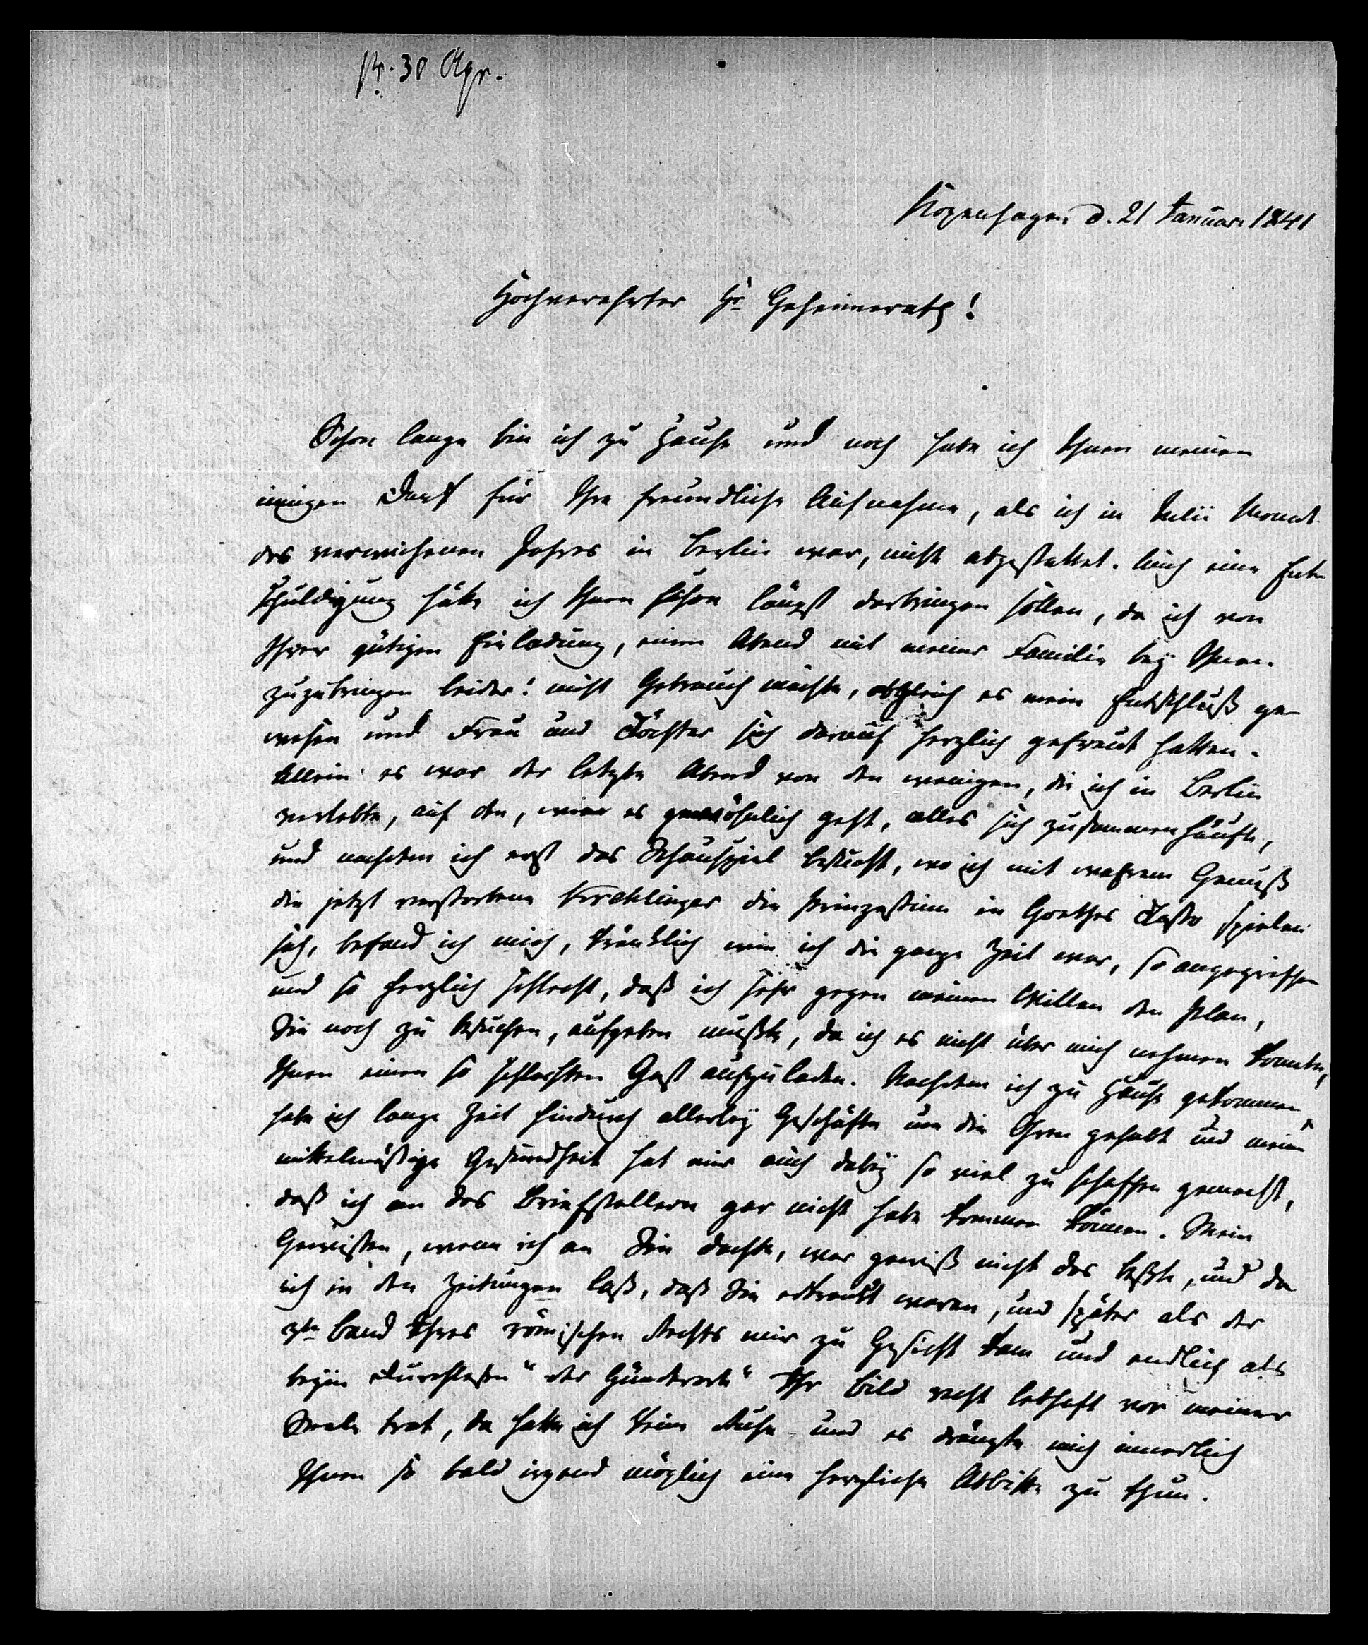 pr. 30 Apr.
Kopenhagen d. 21 Januar 1841
Hochverehrter Hr Geheimerath!
Schon lange bin ich zu Hause und noch habe ich Ihnen meinen
innigen Dank für Ihre freundliche Aufnahme, als ich in Julii Monat
des verwichenen Jahres in Berlin war, nicht abgestattet. Auch eine Ent-
schuldigung hätte ich Ihnen schon längst darbringen sollen, da ich von
Ihrer gütigen Einladung, einen Abend mit meiner Familie bey Ihnen
zuzubringen leider! nicht Gebrauch machte, obgleich es mein Entschluß ge-
wesen und Frau und Töchter sich darauf herzlich gefreut hatten.
Allein es war der letzte Abend von den wenigen, die ich in Berlin
verlebte, auf den, wie es gewöhnlich geht, alles sich zusammen häufte,
und nachdem ich erst das Schauspiel besucht, wo ich mit wahrem Genuß
die jetzt verstorbene die Prinzessinn in Goethes Tasso spielen
sah, befand ich mich, kränklich wie ich die ganze Zeit war, so angegriffen
und so herzlich schlecht, daß ich sehr gegen meinen Willen den Plan,
Sie noch zu besuchen, aufgeben mußte, da ich es nicht über mich nehmen konnte,
Ihnen einen so schlechten Gast aufzuladen. Nachdem ich zu Hause gekommen,
habe ich lange Zeit hindurch allerley Geschäfte um die Ohren gehabt und meine
mittelmäßige Gesundheit hat mir auch dabey so viel zu schaffen gemacht,
daß ich an das Briefstellern gar nicht habe kommen können. Mein
Gewissen, wenn ich an Sie dachte, war gewiß nicht das beste, und da
ich in den Zeitungen laß, daß Sie erkrankt waren, und später als der
Band Ihres römischen Rechts mir zu Gesicht kam und endlich als
beym Durchlesen "der Günderode" Ihr Bild recht lebhaft vor meiner
Seele trat, da hatte ich keine Ruhe und es drängte mich innerlich
Ihnen so bald irgend möglich eine herzliche Abbitte zu thun.